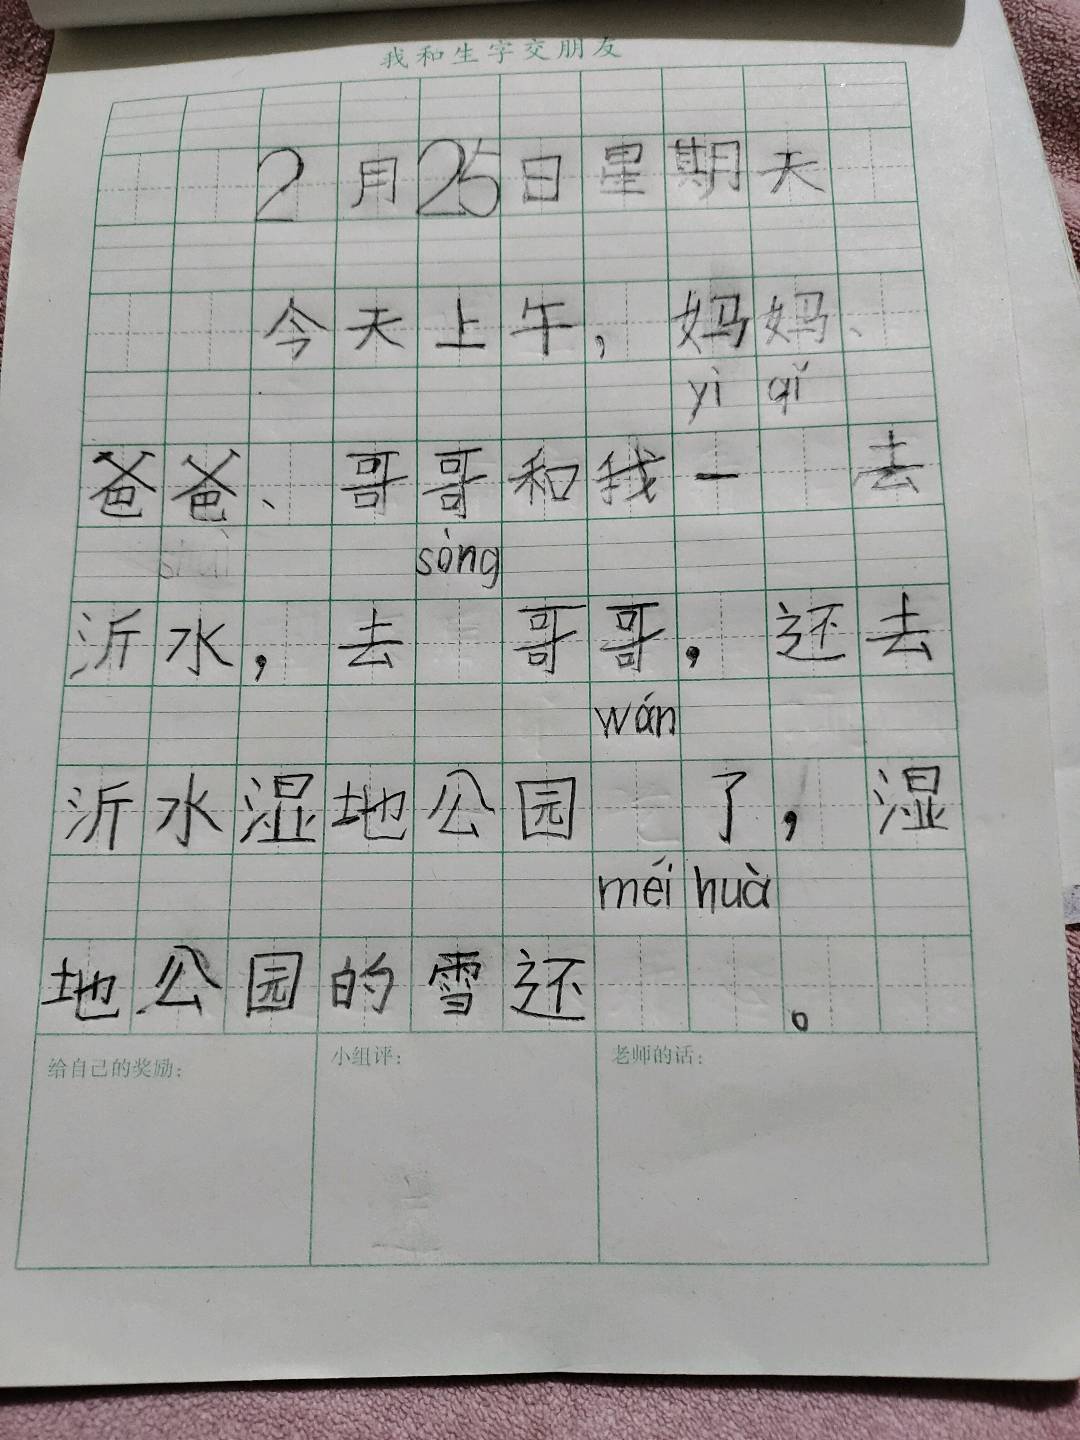 我和生字交朋友
2月25日星期天
今天上午，妈妈、
yì qǐ
爸爸、哥哥和我一 去
sòng
沂水，去 哥哥，还去
wán
沂水湿地公园 了，湿
méi huà
地公园的雪还 。
给自己的奖励：
小组评：
老师的话：